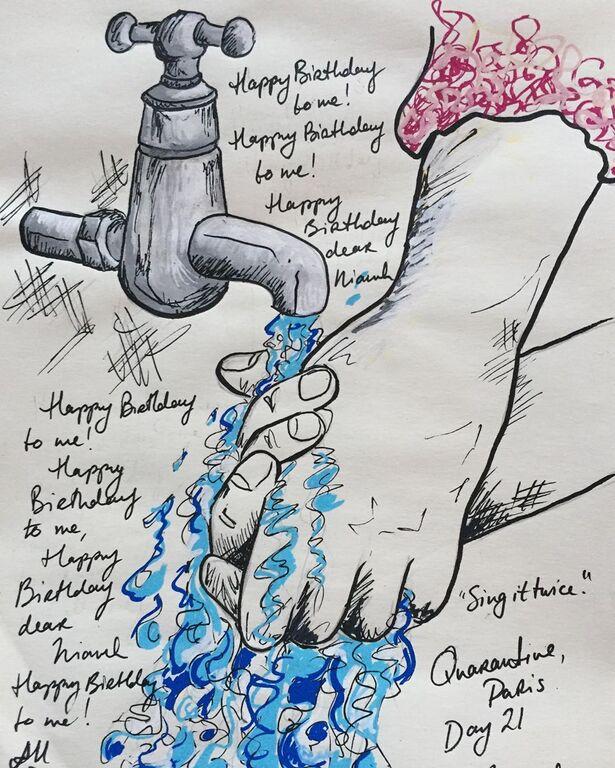 Happy Birthday
to me!
Happy Birthday
to me!
Happy
Birthday
dear
Niamh
Happy Birthday
to me!
Happy
Birthday
to me,
Happy
Birthday
dear
Niamh
Happy Birthday
to me!
"Sing it twice."
Quarantine,
Paris
Day 21